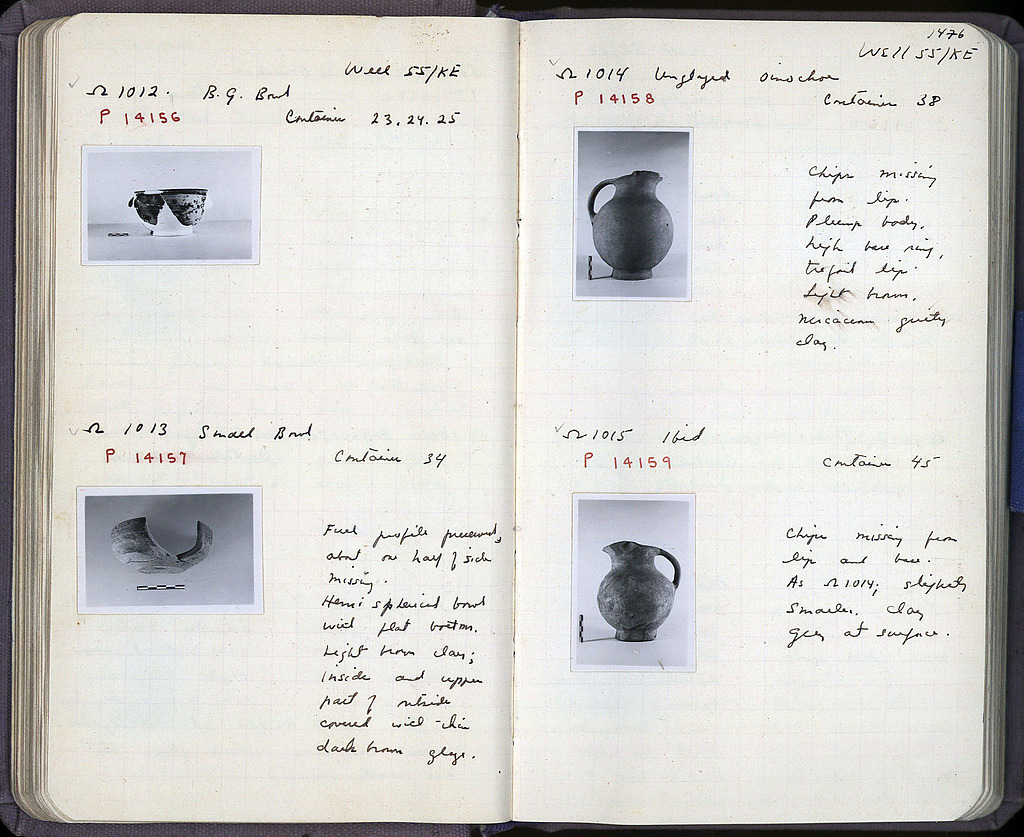 Well 55/KE
Ω 1012. B.G. Bowl
P 14156 Container 23.24.25
Ω 1013 Small Bowl
P 14157 Container 34
Full profile preserved,
about one half of side
missing.
Hemispherical bowl
with flat bottom.
Light brown clay;
inside and upper
part of outside
covered with thin
dark brown glaze.
1476
Well 55/KE
Ω 1014 Unglazed oinochoe
P 14158 Container 38
Chips missing
from lip.
Plump body,
high base ring,
trefoil lip.
Light brown,
micaceous gritty
clay.
Ω 1015 Ibid
P 14159 Container 45
Chips missing from
lip and base.
As Ω 1014; slightly
smaller. Clay
grey at surface.